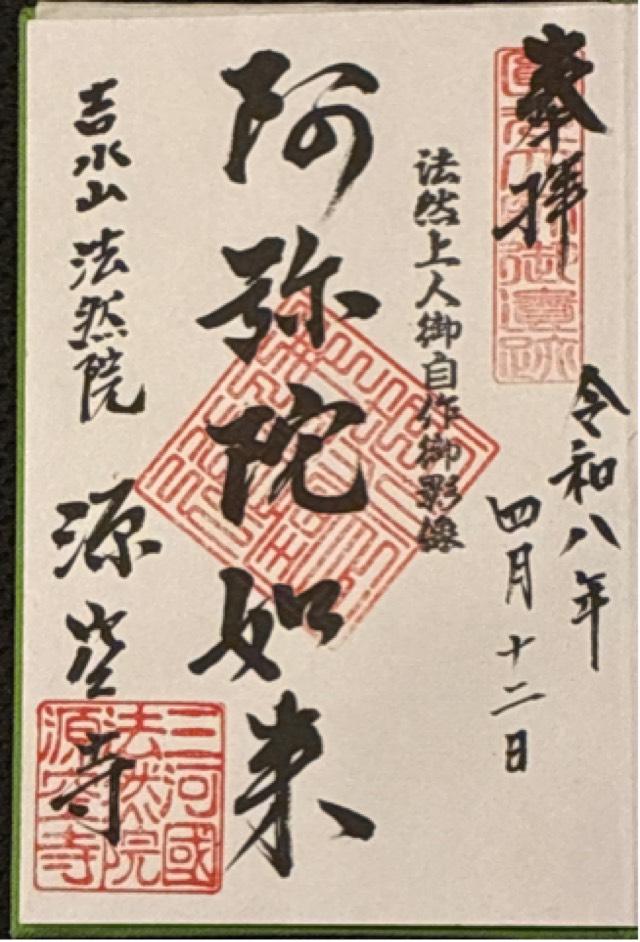 奉拝
令和八年
四月十二日
法然上人御自作御影像
阿弥陀如来
吉水山 法然院
源空寺
三河國
法然院
源空寺